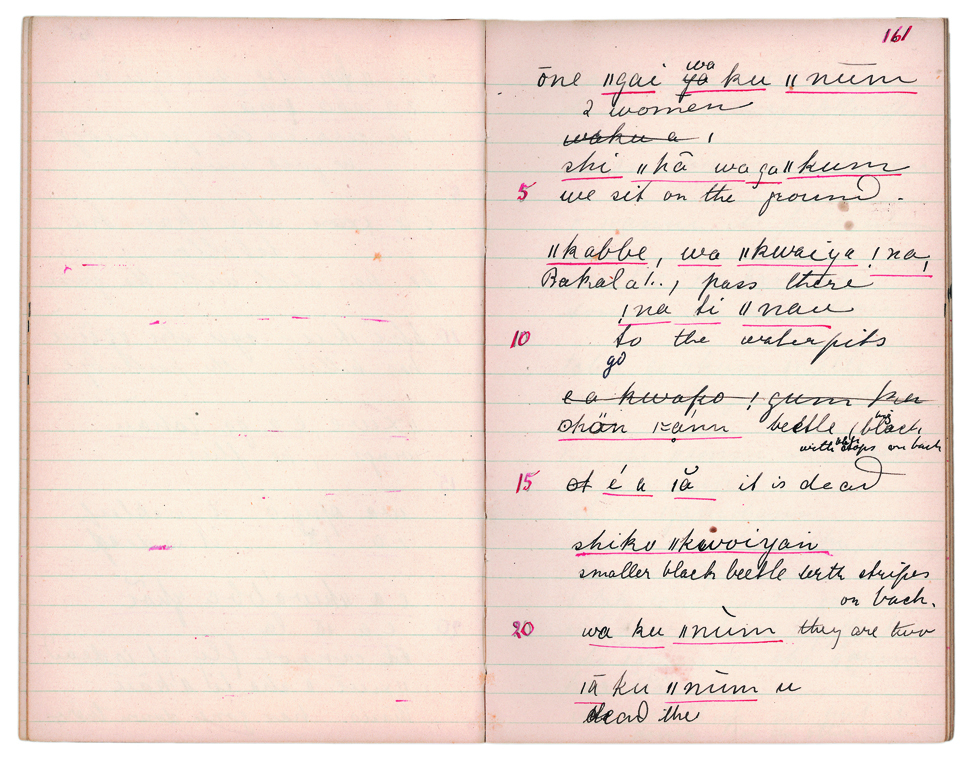 161
ōne ǁgai wa ku ǁnūm
2 women
waku a
shi ǁhā wa ga ǁkum
5 we sit on the ground.
ǁkabbe, wa ǁkwaiya ǃna,
Bakala!.., pass there
ǃna ti ǁnau
10 to the waterpits
go
e a kwako ǃgum ku
beetle, big black
with stops on back
15 é a ǀā it is dead
shiko ǁkwoiyan
smaller black beetle with stripes
on back.
20 wa ku ǁnùm they are two
ǀā ku ǁnùm u
dead the